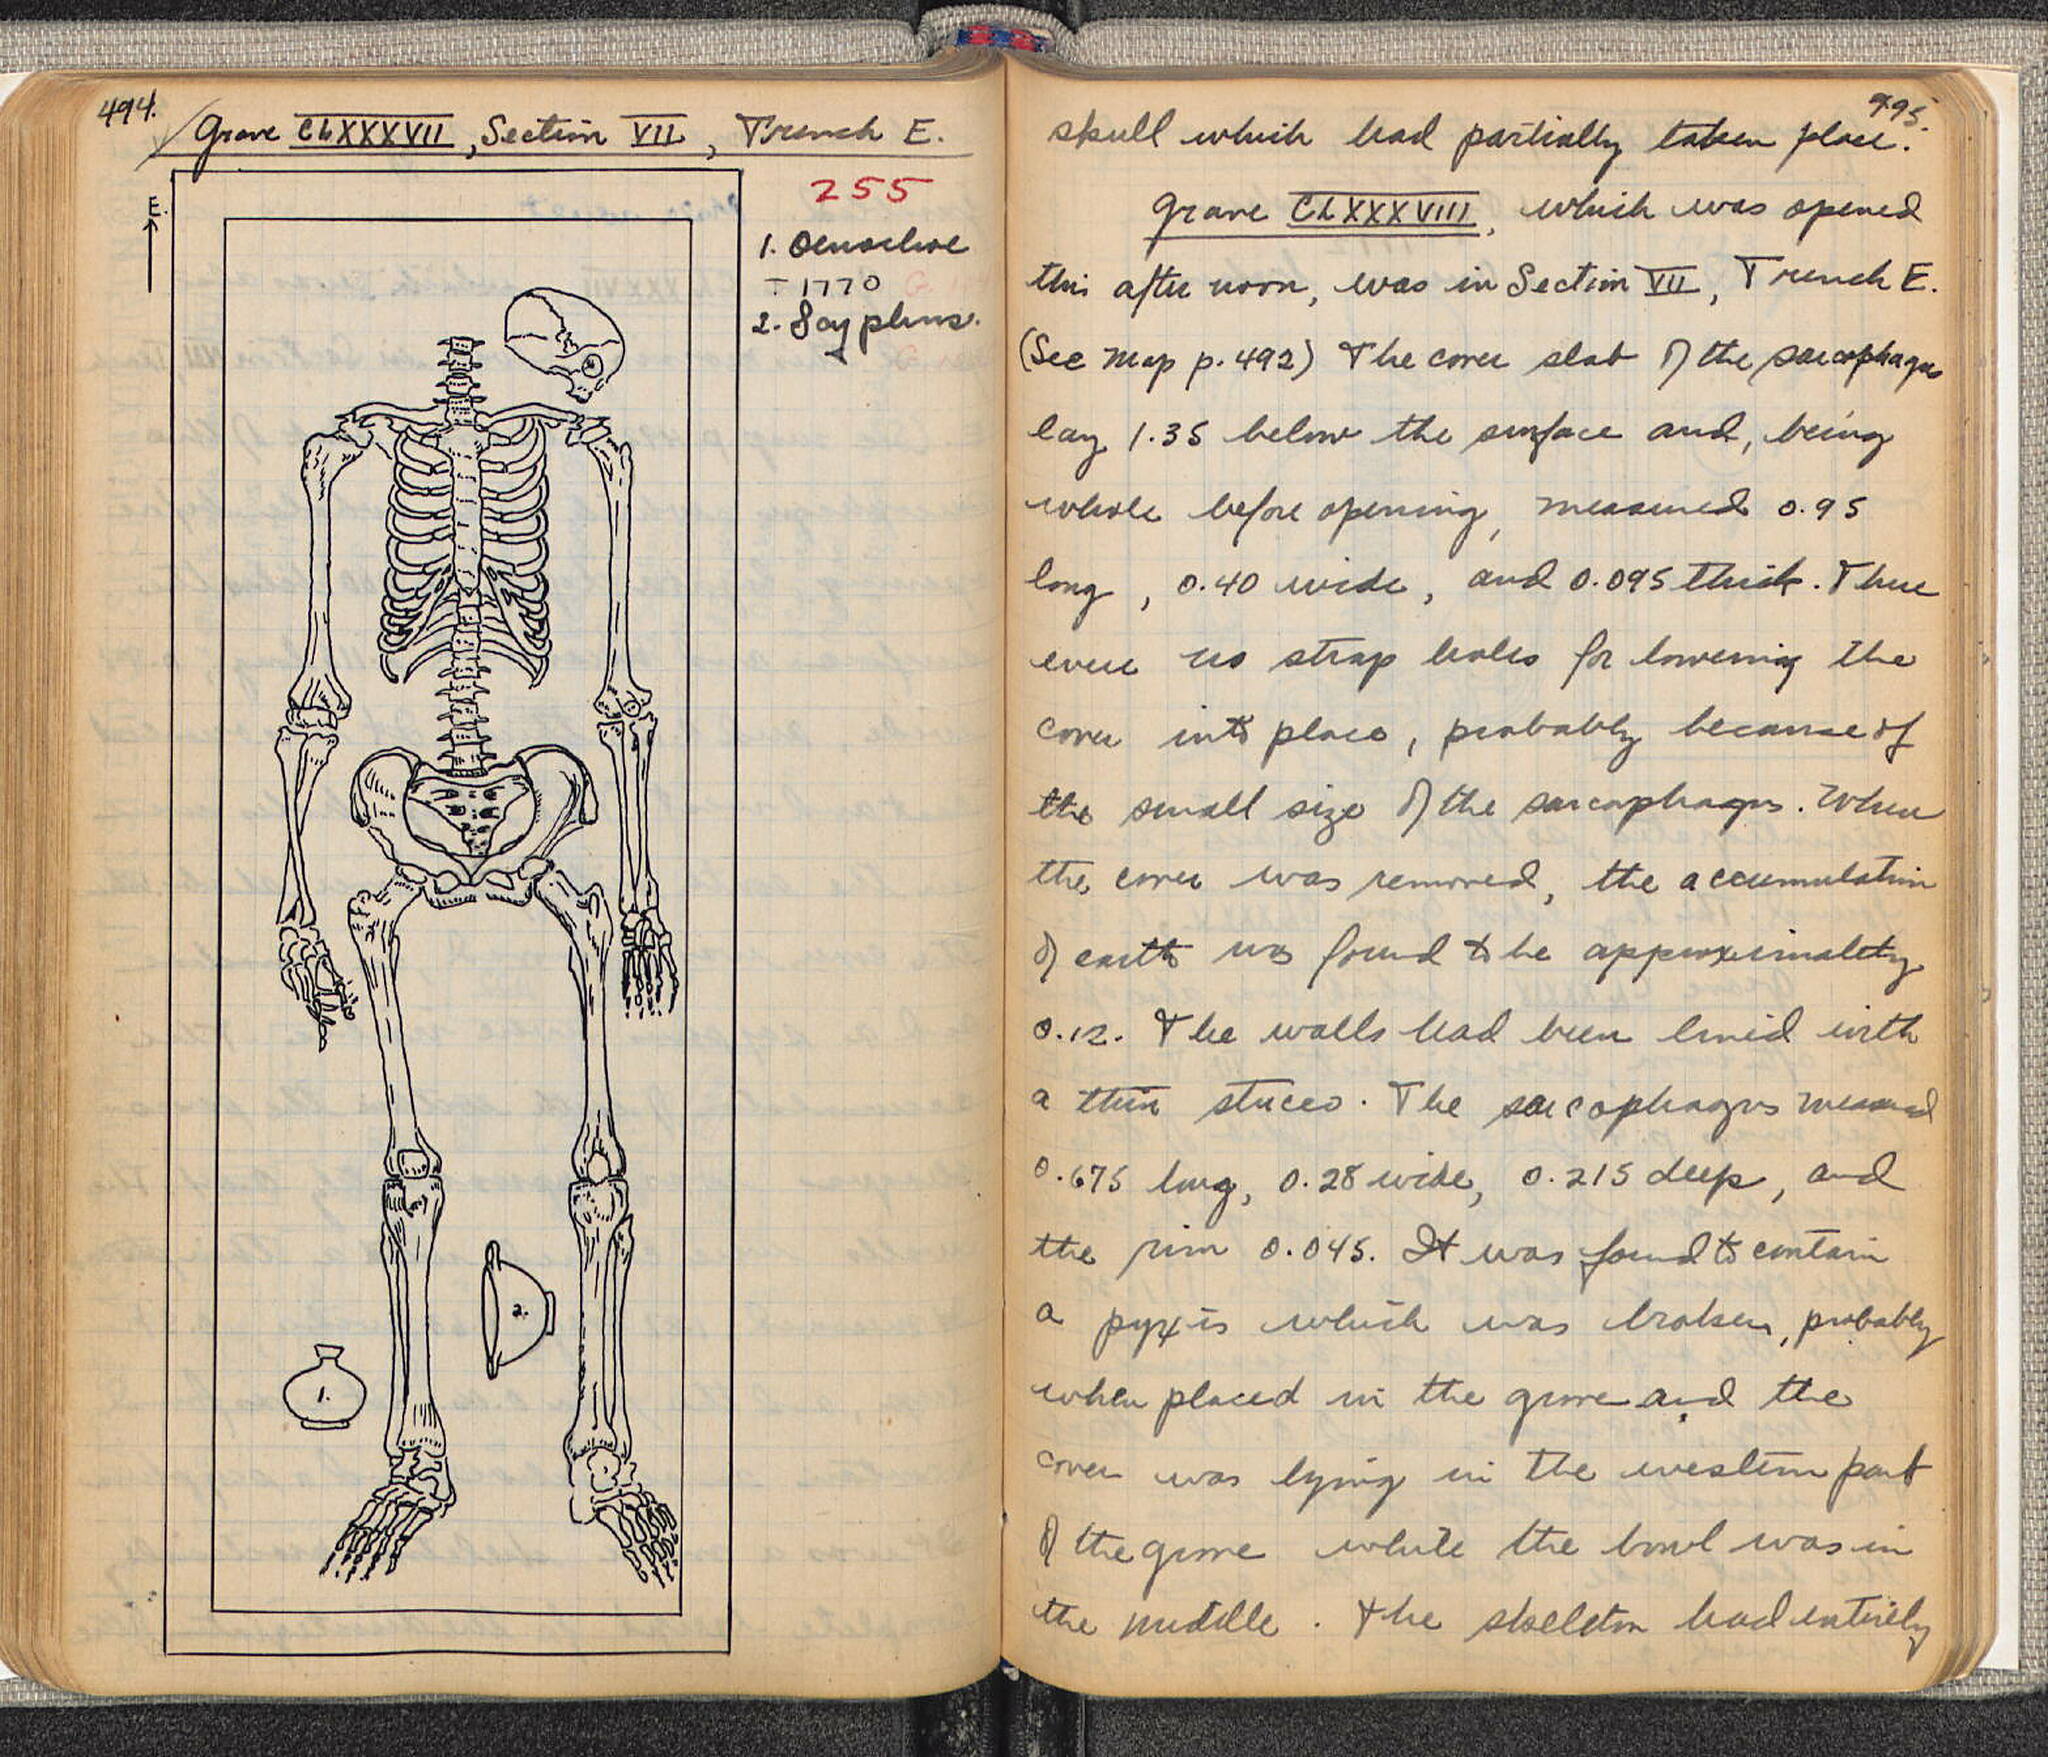 494.
Grave CLXXXVII, Section VII, Trench E.
E.
255
1. Oenochoe
T 1770
2. Scyphus.
2.
1.
495.
skull which had partially taken place.
Grave CLXXXVIII, which was opened
this after noon, was in Section VII, Trench E.
(See Map p. 492) The cover slab of the sarcophagus
lay 1.35 below the surface and, being
whole before opening, measured 0.95
long, 0.40 wide, and 0.095 thick. There
were no strap holes for lowering the
cover into place, probably because of
the small size of the sarcophagus. When
the cover was removed, the accumulation
of earth was found to be approximately
0.12. The walls had been lined with
a thin stucco. The sarcophagus measured
0.675 long, 0.28 wide, 0.215 deep, and
the rim 0.045. It was found to contain
a pyxis which was broken, probably
when placed in the grave and the
cover was lying in the western part
of the grave while the bowl was in
the middle. The skeleton had entirely